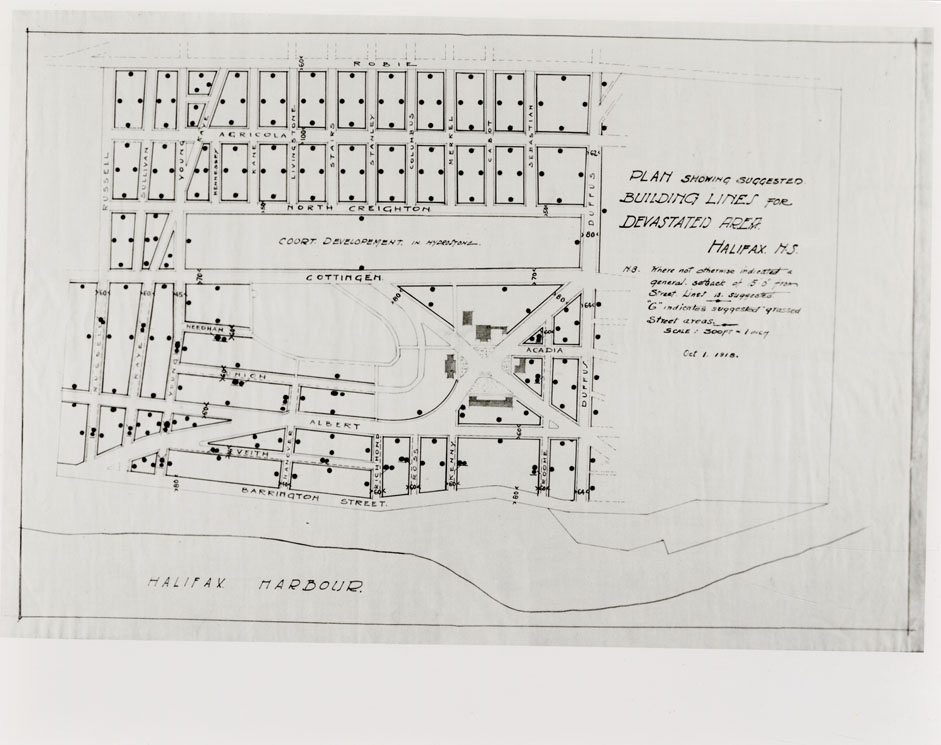 ROBIE
AGRICOLA
RUSSEL
SULLIVAN
YOUNG
KAYE
HENNESSEY
KANE
LIVINGSTONE
STAIRS
STANLEY
COLUMBUS
MERKEL
CABOT
SEBASTIAN
DUFFUS
NORTH CREIGHTON
COURT DEVELOPEMENT. IN HYDROSTONE.
COTTINGEN
NEEDHAM
HIGH
ACADIA
RUSSELL
KAYE
YOUNG
ALBERT
DUFFUS
VEITH
HANOVER
RICHMOND
ROSS
KENNY
ROOME
BARRINGTON STREET.
HALIFAX HARBOUR.
PLAN SHOWING SUGGESTED
BUILDING LINES FOR
DEVASTATED AREA.
HALIFAX N.S.
N.B. Where not otherwise indicated a
general setback of 5'0" from
Street Lines is suggested
"G" indicates suggested grassed
Street areas.
SCALE: 300FT = 1 inch
Oct 1. 1918.